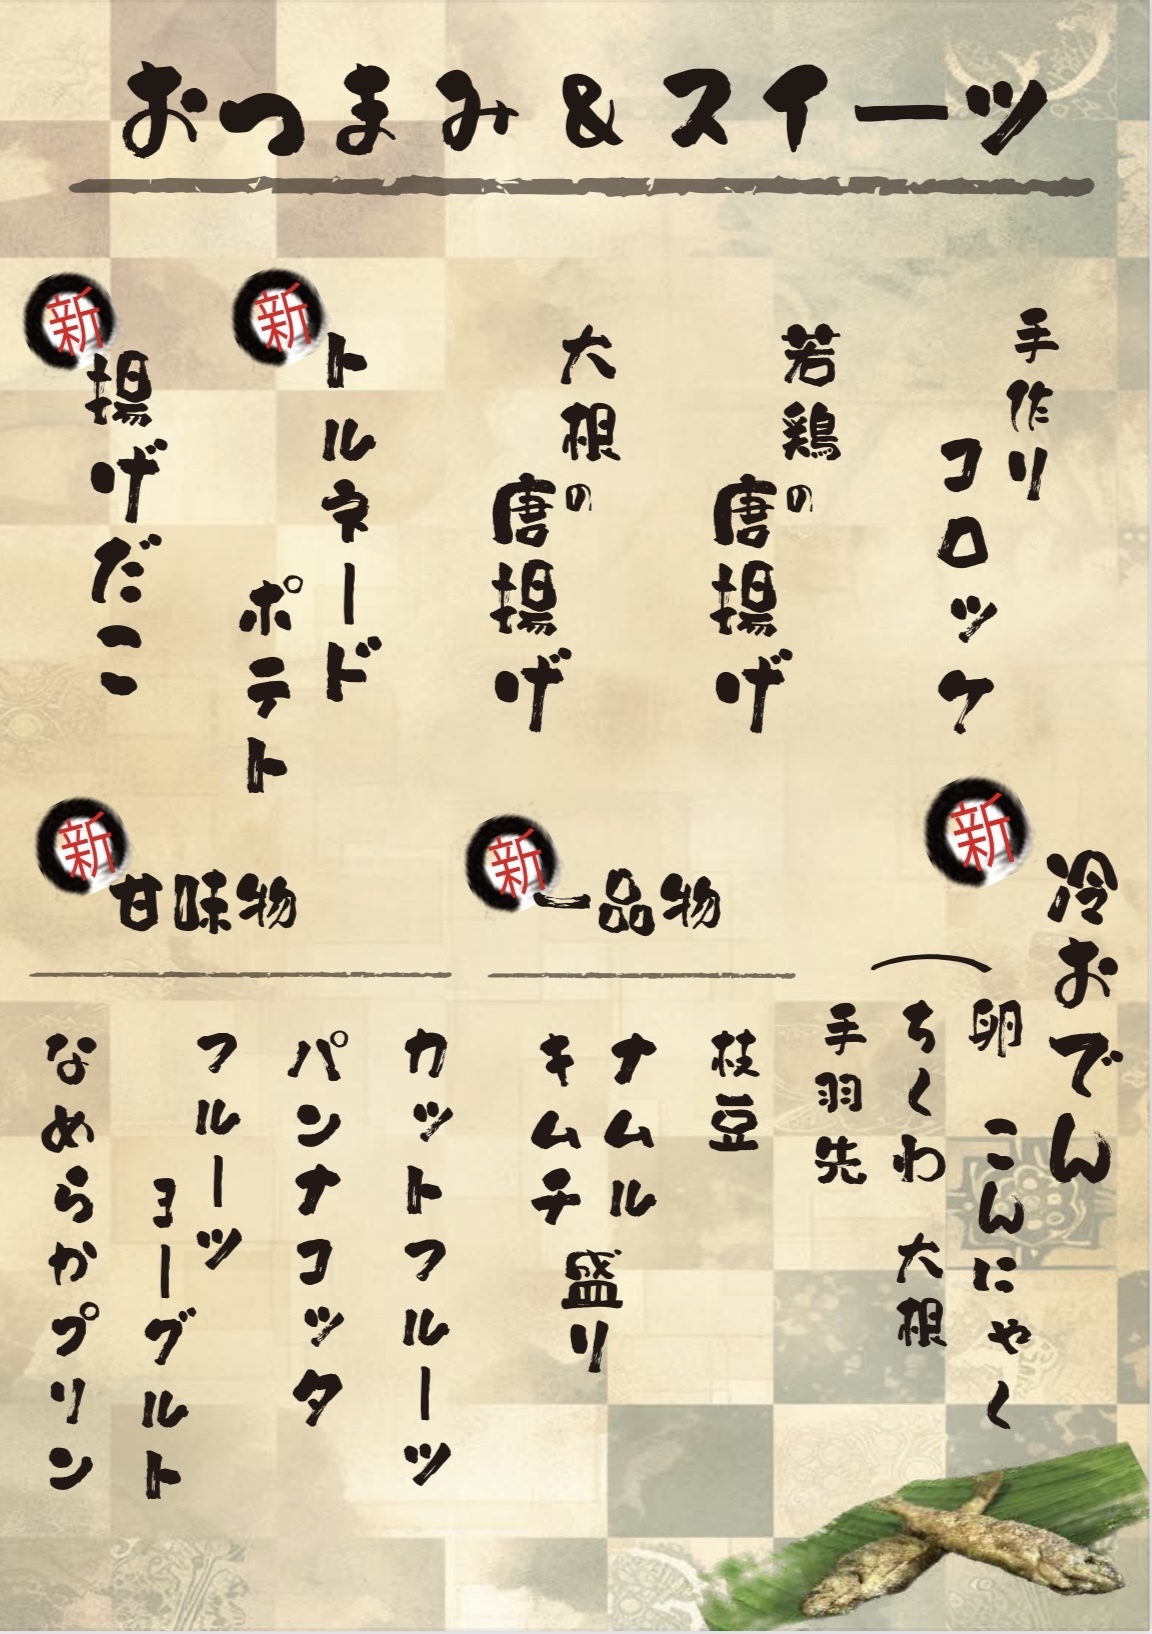 おつまみ&スイーツ
手作り
コロッケ
若鶏の
唐揚げ
大根の
唐揚げ
新
トルネード
ポテト
新
揚げだこ
新
冷おでん
(
卵 こんにゃく
ちくわ 大根
手羽先
新
一品物
枝豆
ナムル
キムチ
盛り
新
甘味物
カットフルーツ
パンナコッタ
フルーツ
ヨーグルト
なめらかプリン